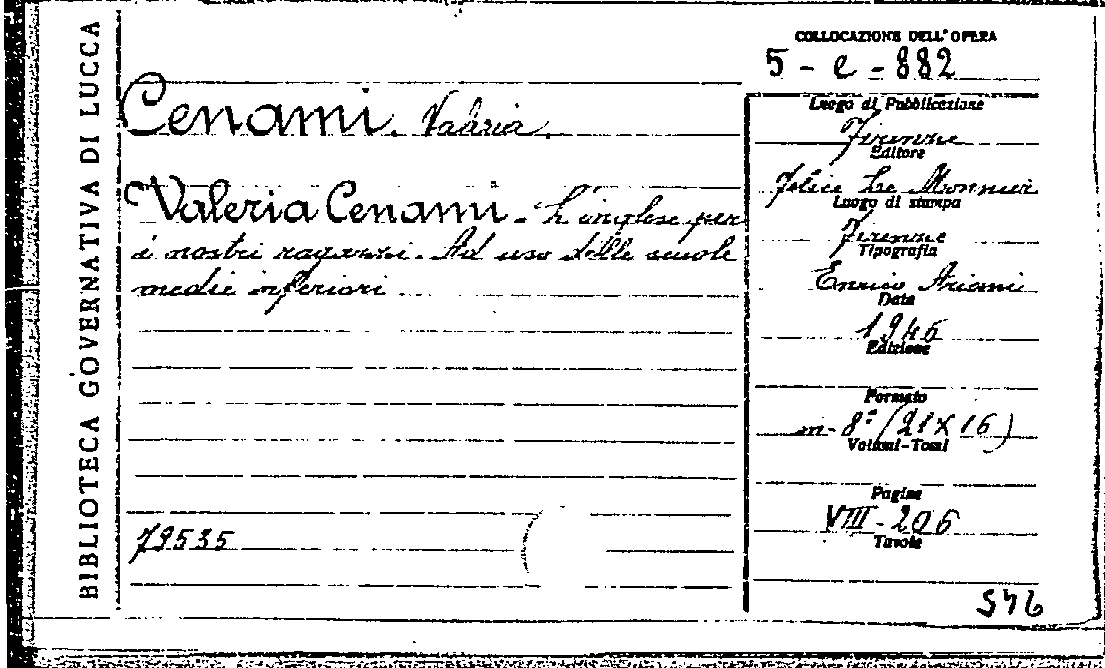 BIBLIOTECA GOVERNATIVA DI LUCCA
Cenami. Valeria.
Valeria Cenami - L'inglese per
i nostri ragazzi. Ad uso delle scuole
medie inferiori
79535
COLLOCAZIONE DELL'OPERA
5 - e - 882
Luogo di Pubblicazione
Firenze
Editore
Felice Le Monnier
Luogo di stampa
Firenze
Tipografia
Enrico Ariani
Data
1946
Edizione
Formato
in- 8° (21 X 16)
Volumi-Tomi
Pagine
VIII - 206
Tavole
546